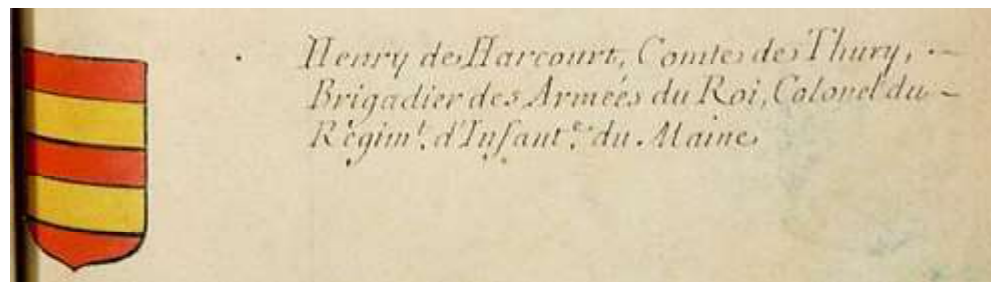 Henry de Harcourt, Comte de Thury,
Brigadier des Armées du Roi, Colonel du
Régim.t d'Infant.e du Maine